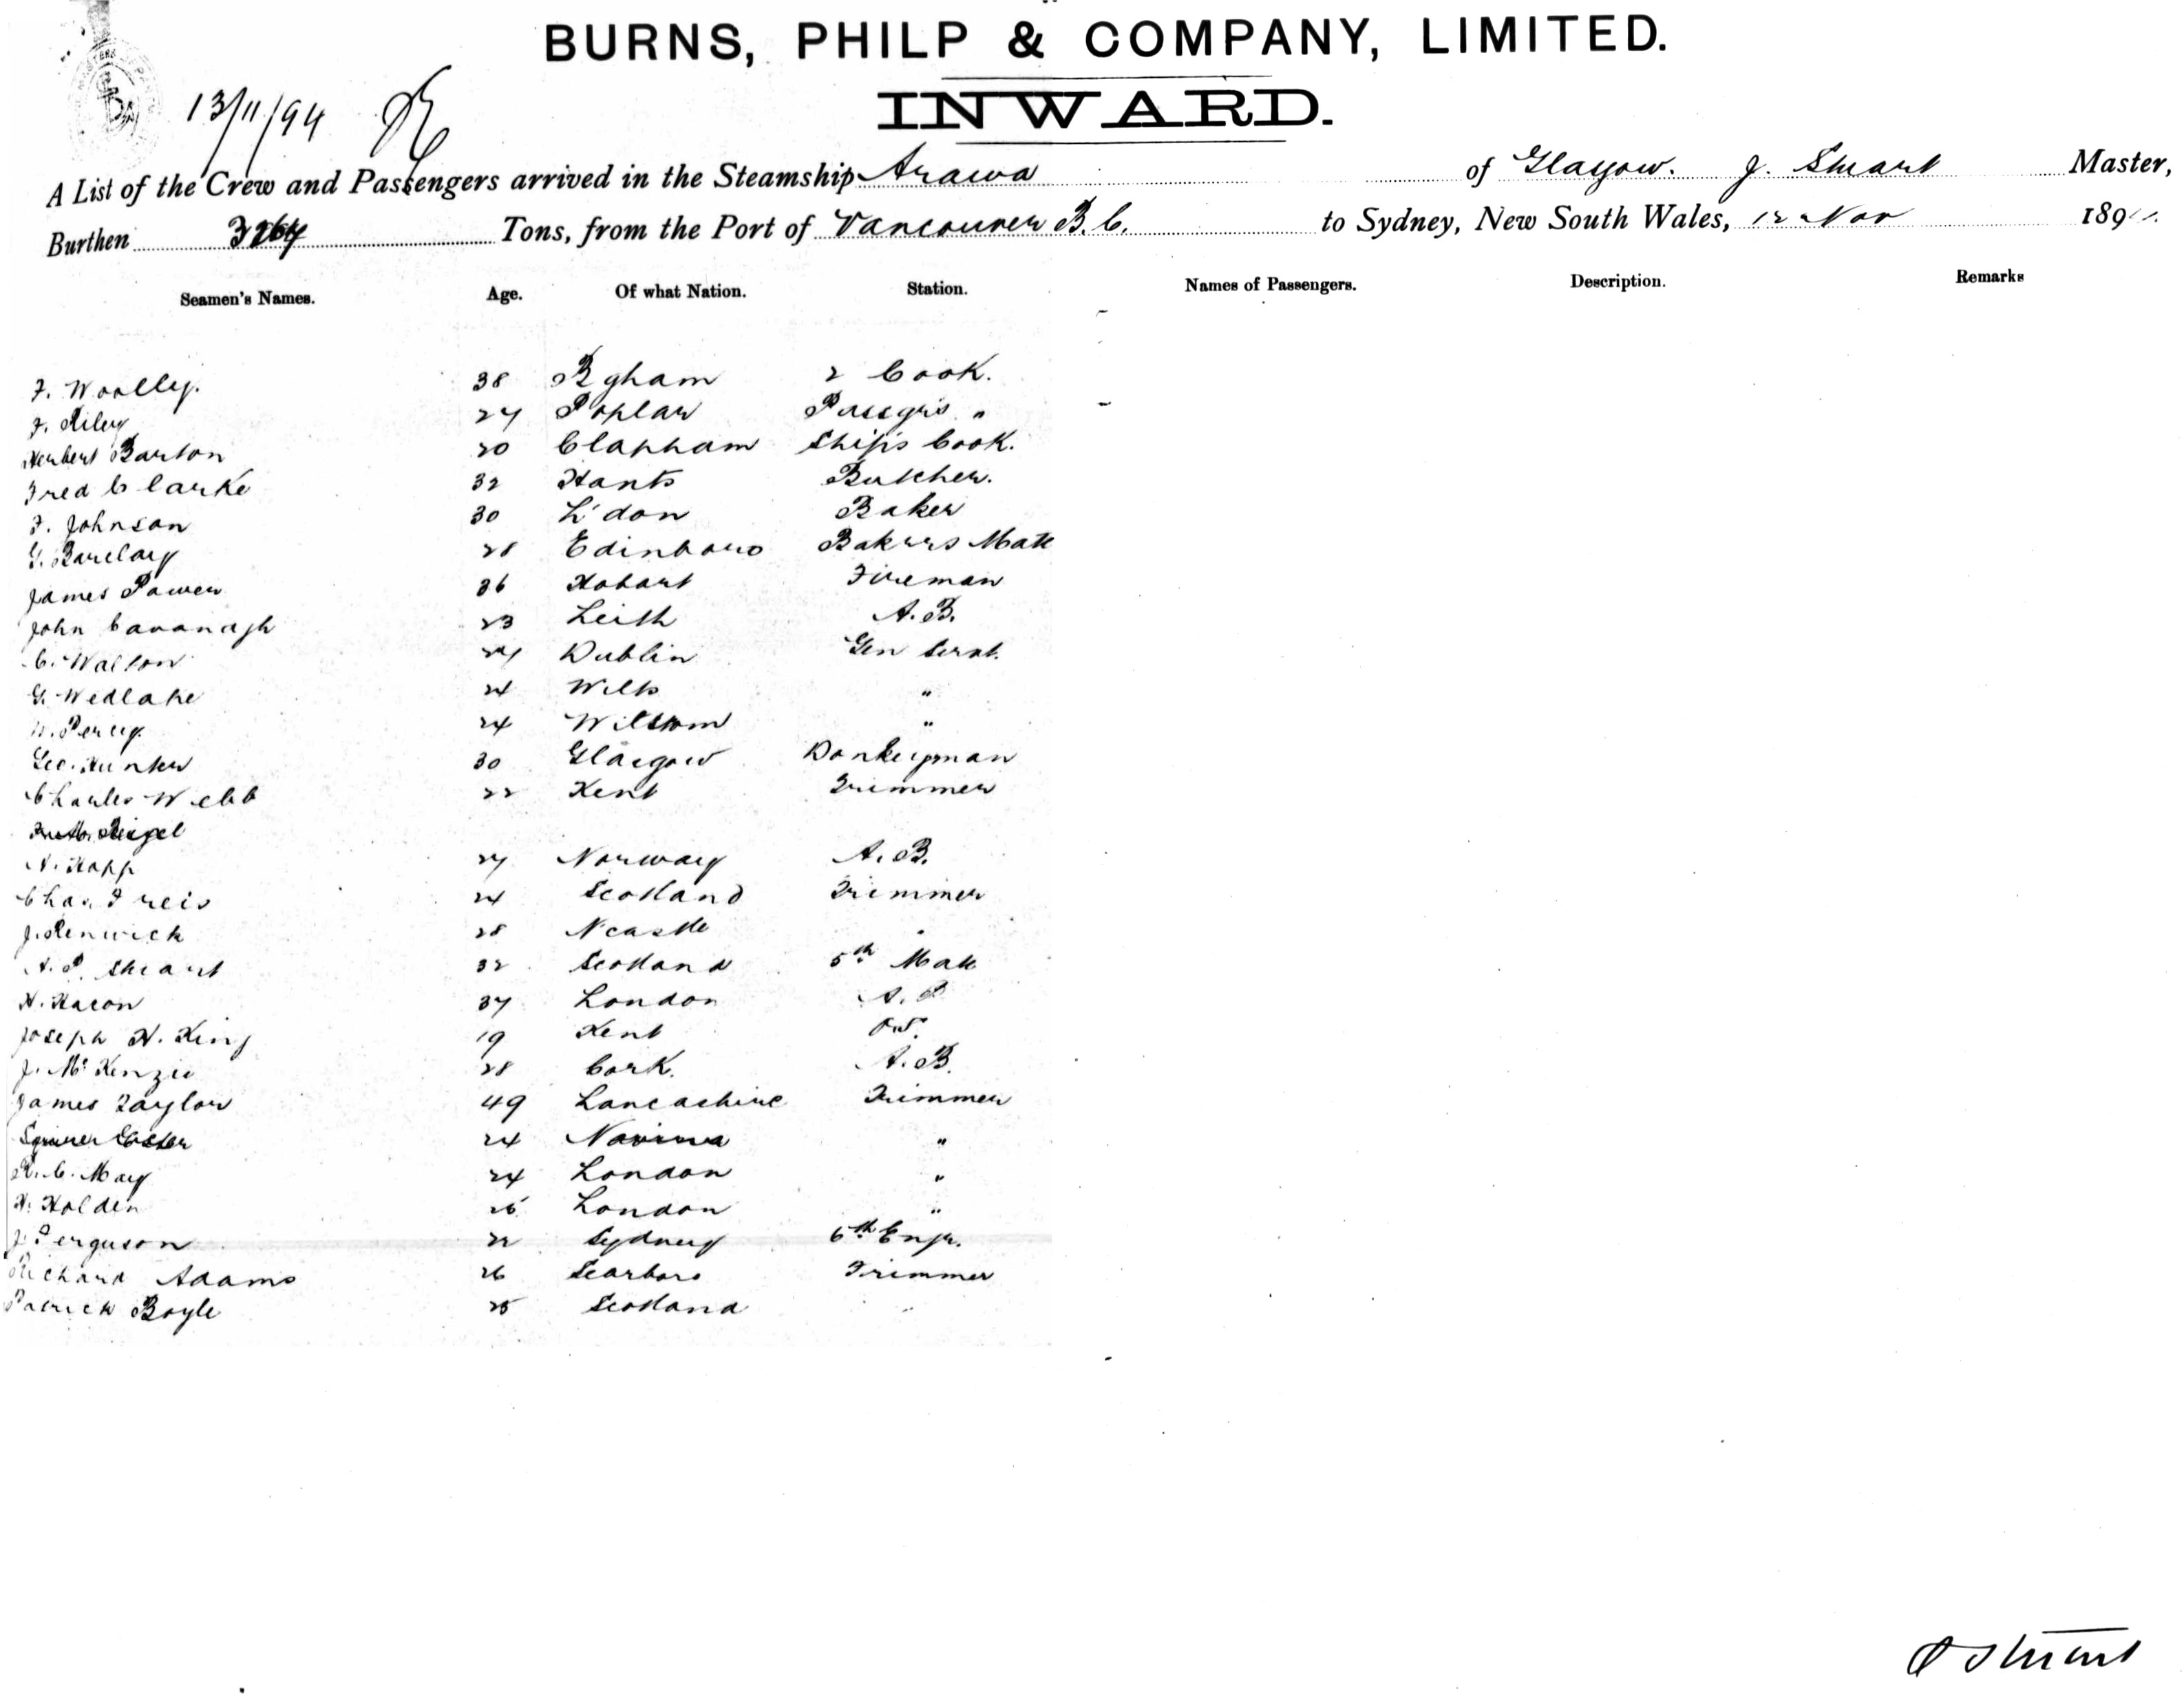 BURNS, PHILP & COMPANY, LIMITED.
INWARD.
13/11/94
A List of the Crew and Passengers arrived in the Steamship Arawa of Glasgow. J. Stuart Master,
Burthen Tons, from the Port of Vancouver B.C. to Sydney, New South Wales, 12 Nov 189
Seamen's Names. Age. Of what Nation. Station. Names of Passengers. Description. Remarks
F. Woolley. 38 Bgham 2 Cook.
F. Riley 27 Poplar Passgrs "
Herbert Barton 20 Clapham Ship's Cook.
Fred Clarke 32 Hants Butcher.
F. Johnson 30 L'don Baker
G. Barclay 28 Edinboro Bakers Mate
James Power 36 Hobart Fireman
John Cavanagh 23 Leith A.B.
C. Walton Dublin Gen Servt.
G. Wedlake 24 Wilts "
Percy. 24 "
Geo. Hunter 30 Glasgow Donkeyman
Charles Webb 22 Kent Trimmer
A. Kopp 27 Norway A.B.
Chas. Freis 24 Scotland Trimmer
J. Renwick 28 Ncastle "
A. P. Stuart 32 Scotland 5th Mate
H. Bacon 37 London A.B
Joseph H. King 19 Kent O.S.
J. McKenzie 28 Cork. A.B.
James Taylor 49 Lancashire Trimmer
24 "
R. C. May 24 London "
H. Holden 26 London "
J. Ferguson 22 Sydney 6th Engr.
Richard Adams 26 Scarboro Trimmer
Patrick Boyle 25 Scotland "
J Stuart